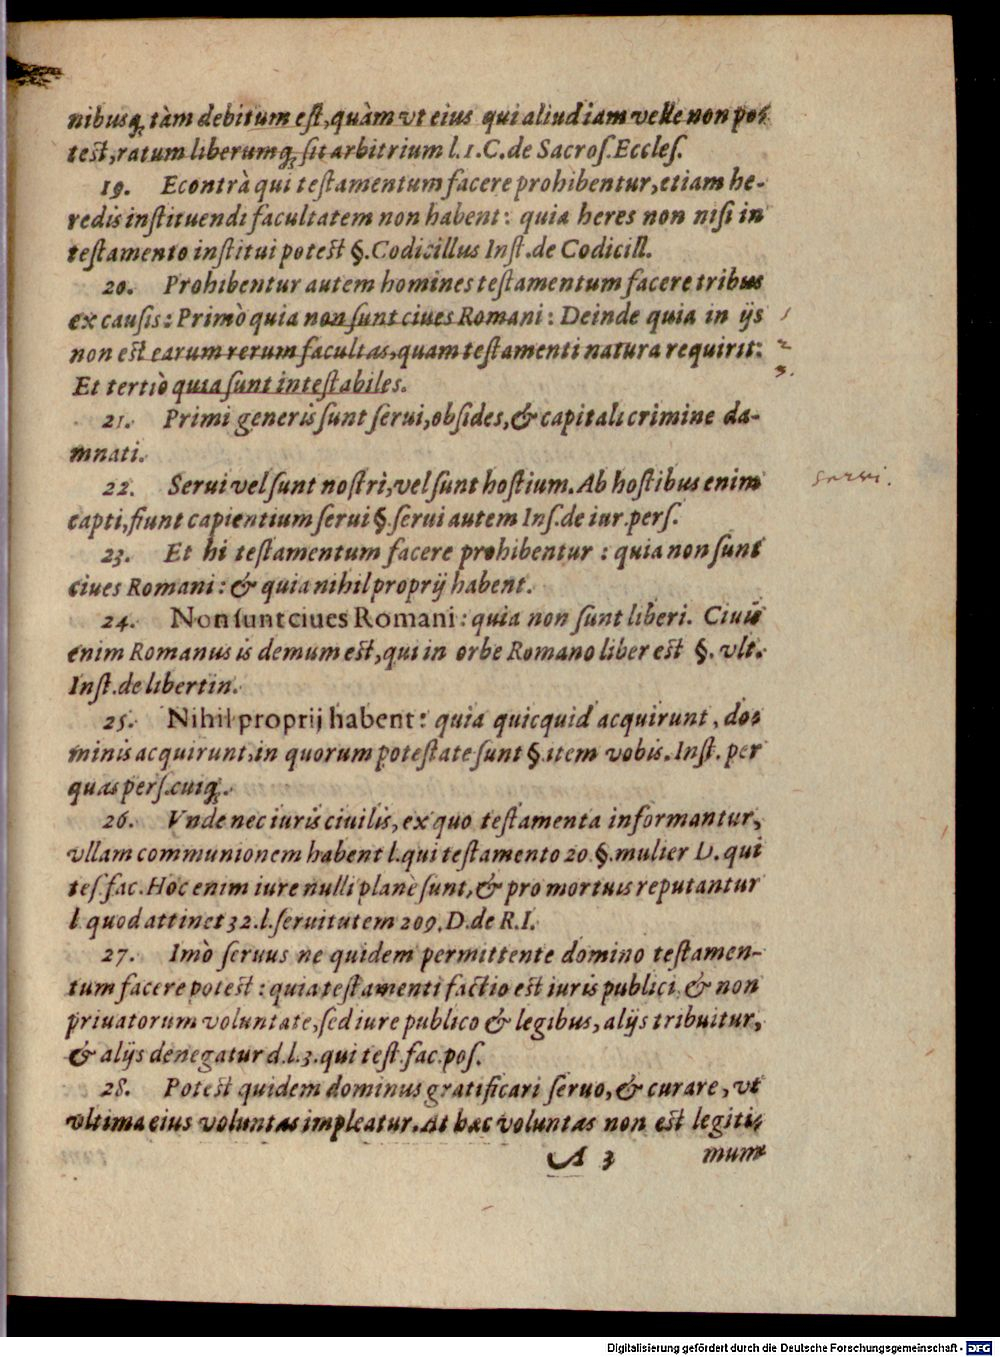 nibusq́; tàm debitum eſt, quàm vt eius qui aliud iam velle non poſ-
test, ratum liberumq́; ſit arbitrium l. 1. C. de Sacroſ. Eccleſ.
19. Econtrà qui teſtamentum facere prohibentur, etiam he-
redis inſtituendi facultatem non habent: quia heres non niſi in
teſtamento inſtitui potest §. Codicillus Inſt. de Codicill.
20. Prohibentur autem homines teſtamentum facere tribus
ex cauſis: Primò quia non ſunt ciues Romani: Deinde quia in ijs
non est earum rerum facultas, quam teſtamenti natura requirit:
Et tertiò quia ſunt inteſtabiles.
1
2
3.
21. Primi generis ſunt ſerui, obſides, & capitali crimine da-
mnati.
22. Serui vel ſunt noſtri, vel ſunt hoſtium. Ab hoſtibus enim
capti, fiunt capientium ſerui §. ſerui autem Inſ. de iur. perſ.
servi.
23. Et hi teſtamentum facere prohibentur: quia non ſunt
ciues Romani: & quia nihil proprij habent.
24. Non ſunt ciues Romani: quia non ſunt liberi. Ciuis
enim Romanus is demum est, qui in orbe Romano liber est §. vlt.
Inſt. de libertin.
25. Nihil proprij habent: quia quicquid acquirunt, do-
minis acquirunt, in quorum poteſtate ſunt §. item vobis. Inſt. per
quas perſ. cuiq́;.
26. Vnde nec iuris ciuilis, ex quo teſtamenta informantur,
vllam communionem habent l. qui teſtamento 20. §. mulier D. qui
teſ. fac. Hoc enim iure nulli planè ſunt, & pro mortuis reputantur
l. quod attinet 32. l. ſeruitutem 209. D. de R. I.
27. Imò ſeruus ne quidem permittente domino teſtamen-
tum facere potest: quia teſtamenti factio est iuris publici, & non
priuatorum voluntate, ſed iure publico & legibus, alijs tribuitur,
& alijs denegatur d. l. 3. qui teſt. fac. poſ.
28. Potest quidem dominus gratificari ſeruo, & curare, vt
vltima eius voluntas impleatur. At hæc voluntas non est legiti-
A 3 mum
Digitalisierung gefördert durch die Deutsche Forschungsgemeinschaft - DFG